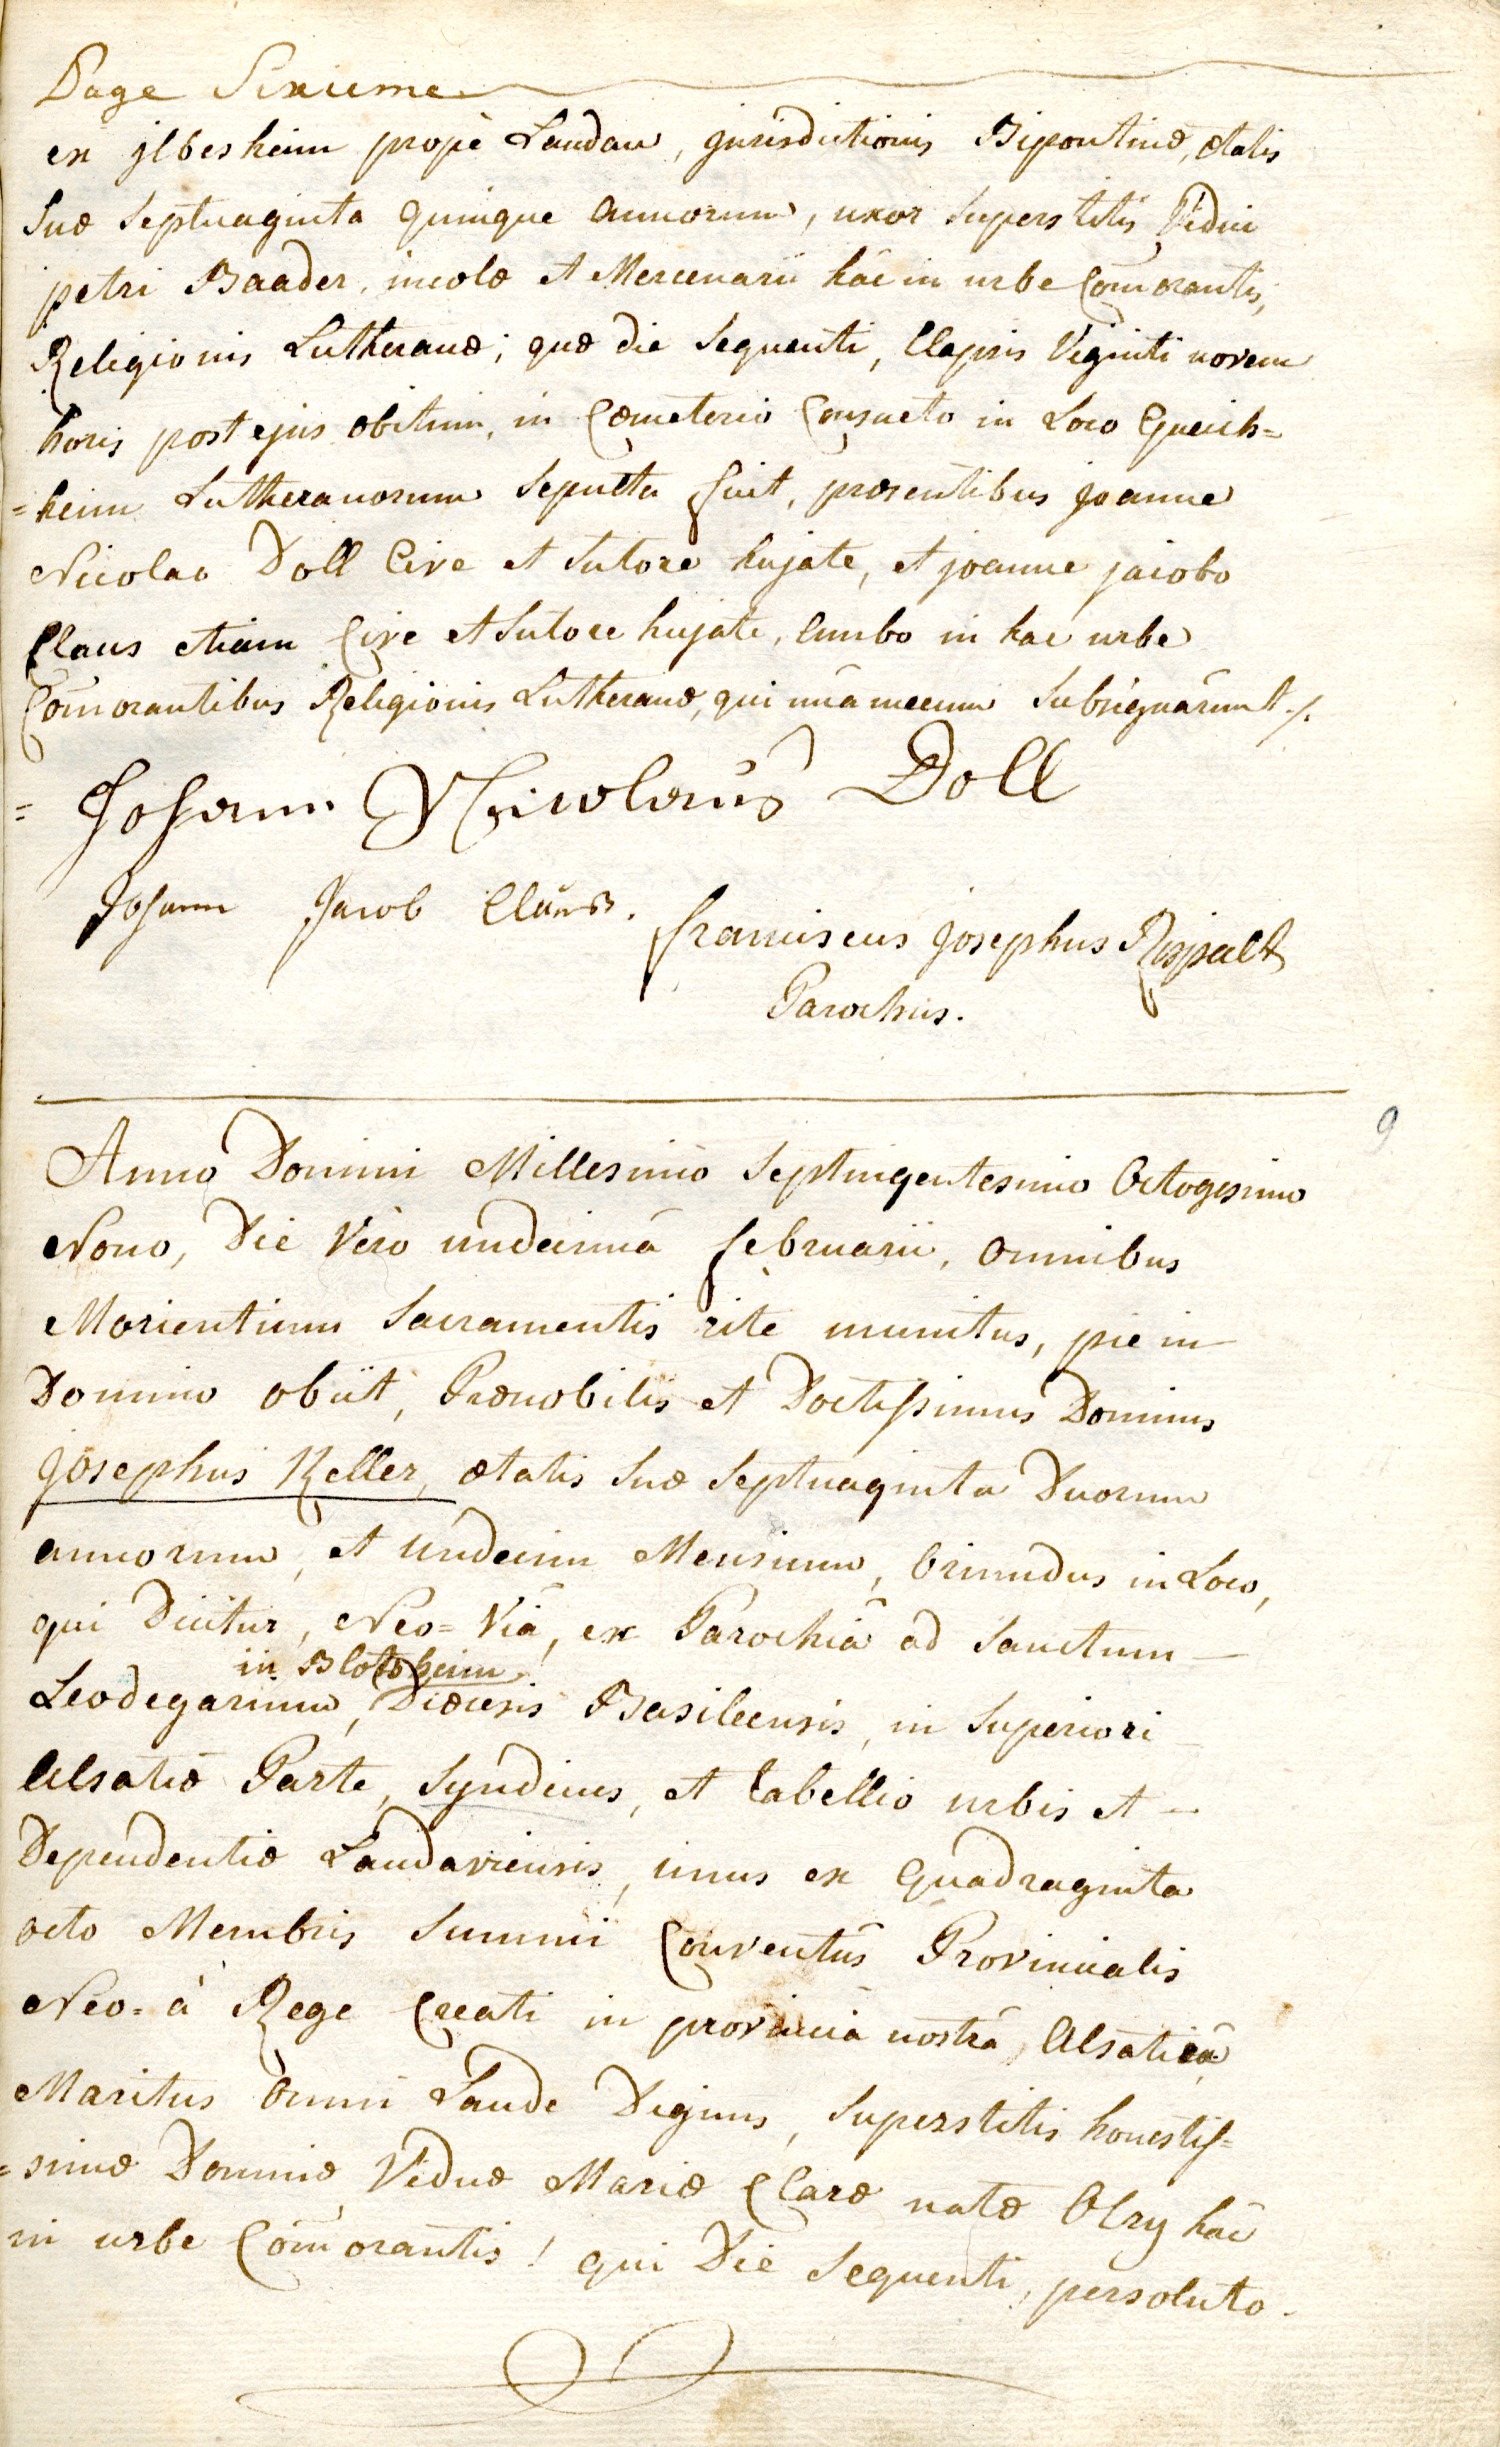 Page Sixieme
ex jlbesheim propè Landau, jurisdictionis Bipontinæ, ætatis
suæ septuaginta quinque annorum, uxor superstitis Vidui
petri Baader, incolæ et Mercenarii hâc in urbe Com̄orantis,
Religionis Lutheranæ; quæ die sequenti, Elapsis Viginti novem
horis post ejus obitum, in Cœmeterio Consueto in Loco Queich=
=heim Lutheranorum sepulta fuit, præsentibus joanne
Nicolao Doll Cive et sutore hujate, et joanne jacobo
Claus etiam Cive et Sutore hujate, ambo in hac urbe
Com̄orantibus Religionis Lutheranæ, qui unà mecum subsignârunt ./.
= Johann Nicolaus Doll
Johann Jacob Clauß.
franciscus josephus
Parochus.
9
Anno Domini Millesimo septingentesimo Octogesimo
Nono, Die Verò undecimâ februarii, omnibus
Morientium Sacramentis rite munitus, pie in
Domino obiit, Prænobilis et Doctissimus Dominus
josephus Keller, ætatis suæ septuaginta Duorum
annorum, et undecim Mensium, Oriundus in Loco,
qui Dicitur, Neo=Viâ, ex Parochiâ ad Sanctum
in Blotzheim
Leodegarium, Diœcesis Basileensis, in superiori
Alsatiæ Parte, Syndicus, et tabellio urbis et
Dependentiæ Landaviensis, unus ex quadraginta
octo Membris summi Conventûs Provincialis
Neo=à Rege Creati in provinciâ nostrâ, Alsaticâ
Maritus Omni Laude Dignus, superstitis honestis=
=simæ Dominæ, Viduæ Mariæ Claræ natæ Olry hâc
in urbe Com̄orantis! qui Die sequenti, persoluto